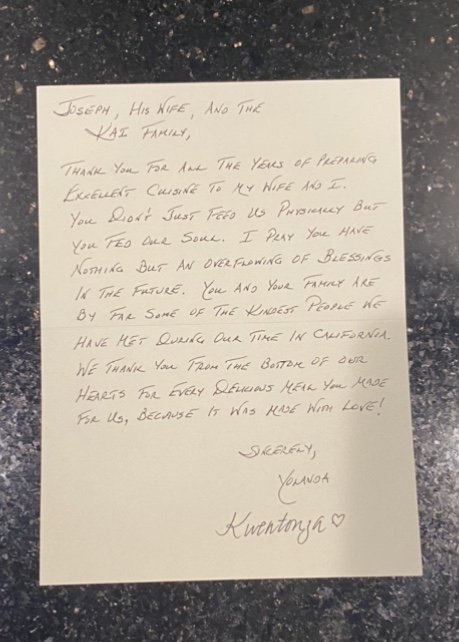 JOSEPH, HIS WIFE, AND THE
KAI FAMILY,
THANK YOU FOR ALL THE YEARS OF PREPARING
EXCELLENT CUISINE TO MY WIFE AND I.
YOU DIDN'T JUST FEED US PHYSICALLY BUT
YOU FED OUR SOUL. I PRAY YOU HAVE
NOTHING BUT AN OVERFLOWING OF BLESSINGS
IN THE FUTURE. YOU AND YOUR FAMILY ARE
BY FAR SOME OF THE KINDEST PEOPLE WE
HAVE MET DURING OUR TIME IN CALIFORNIA.
WE THANK YOU FROM THE BOTTOM OF OUR
HEARTS FOR EVERY DELICIOUS MEAL YOU MADE
FOR US, BECAUSE IT WAS MADE WITH LOVE!
SINCERELY,
YOLANDA
Kwentonja ♡